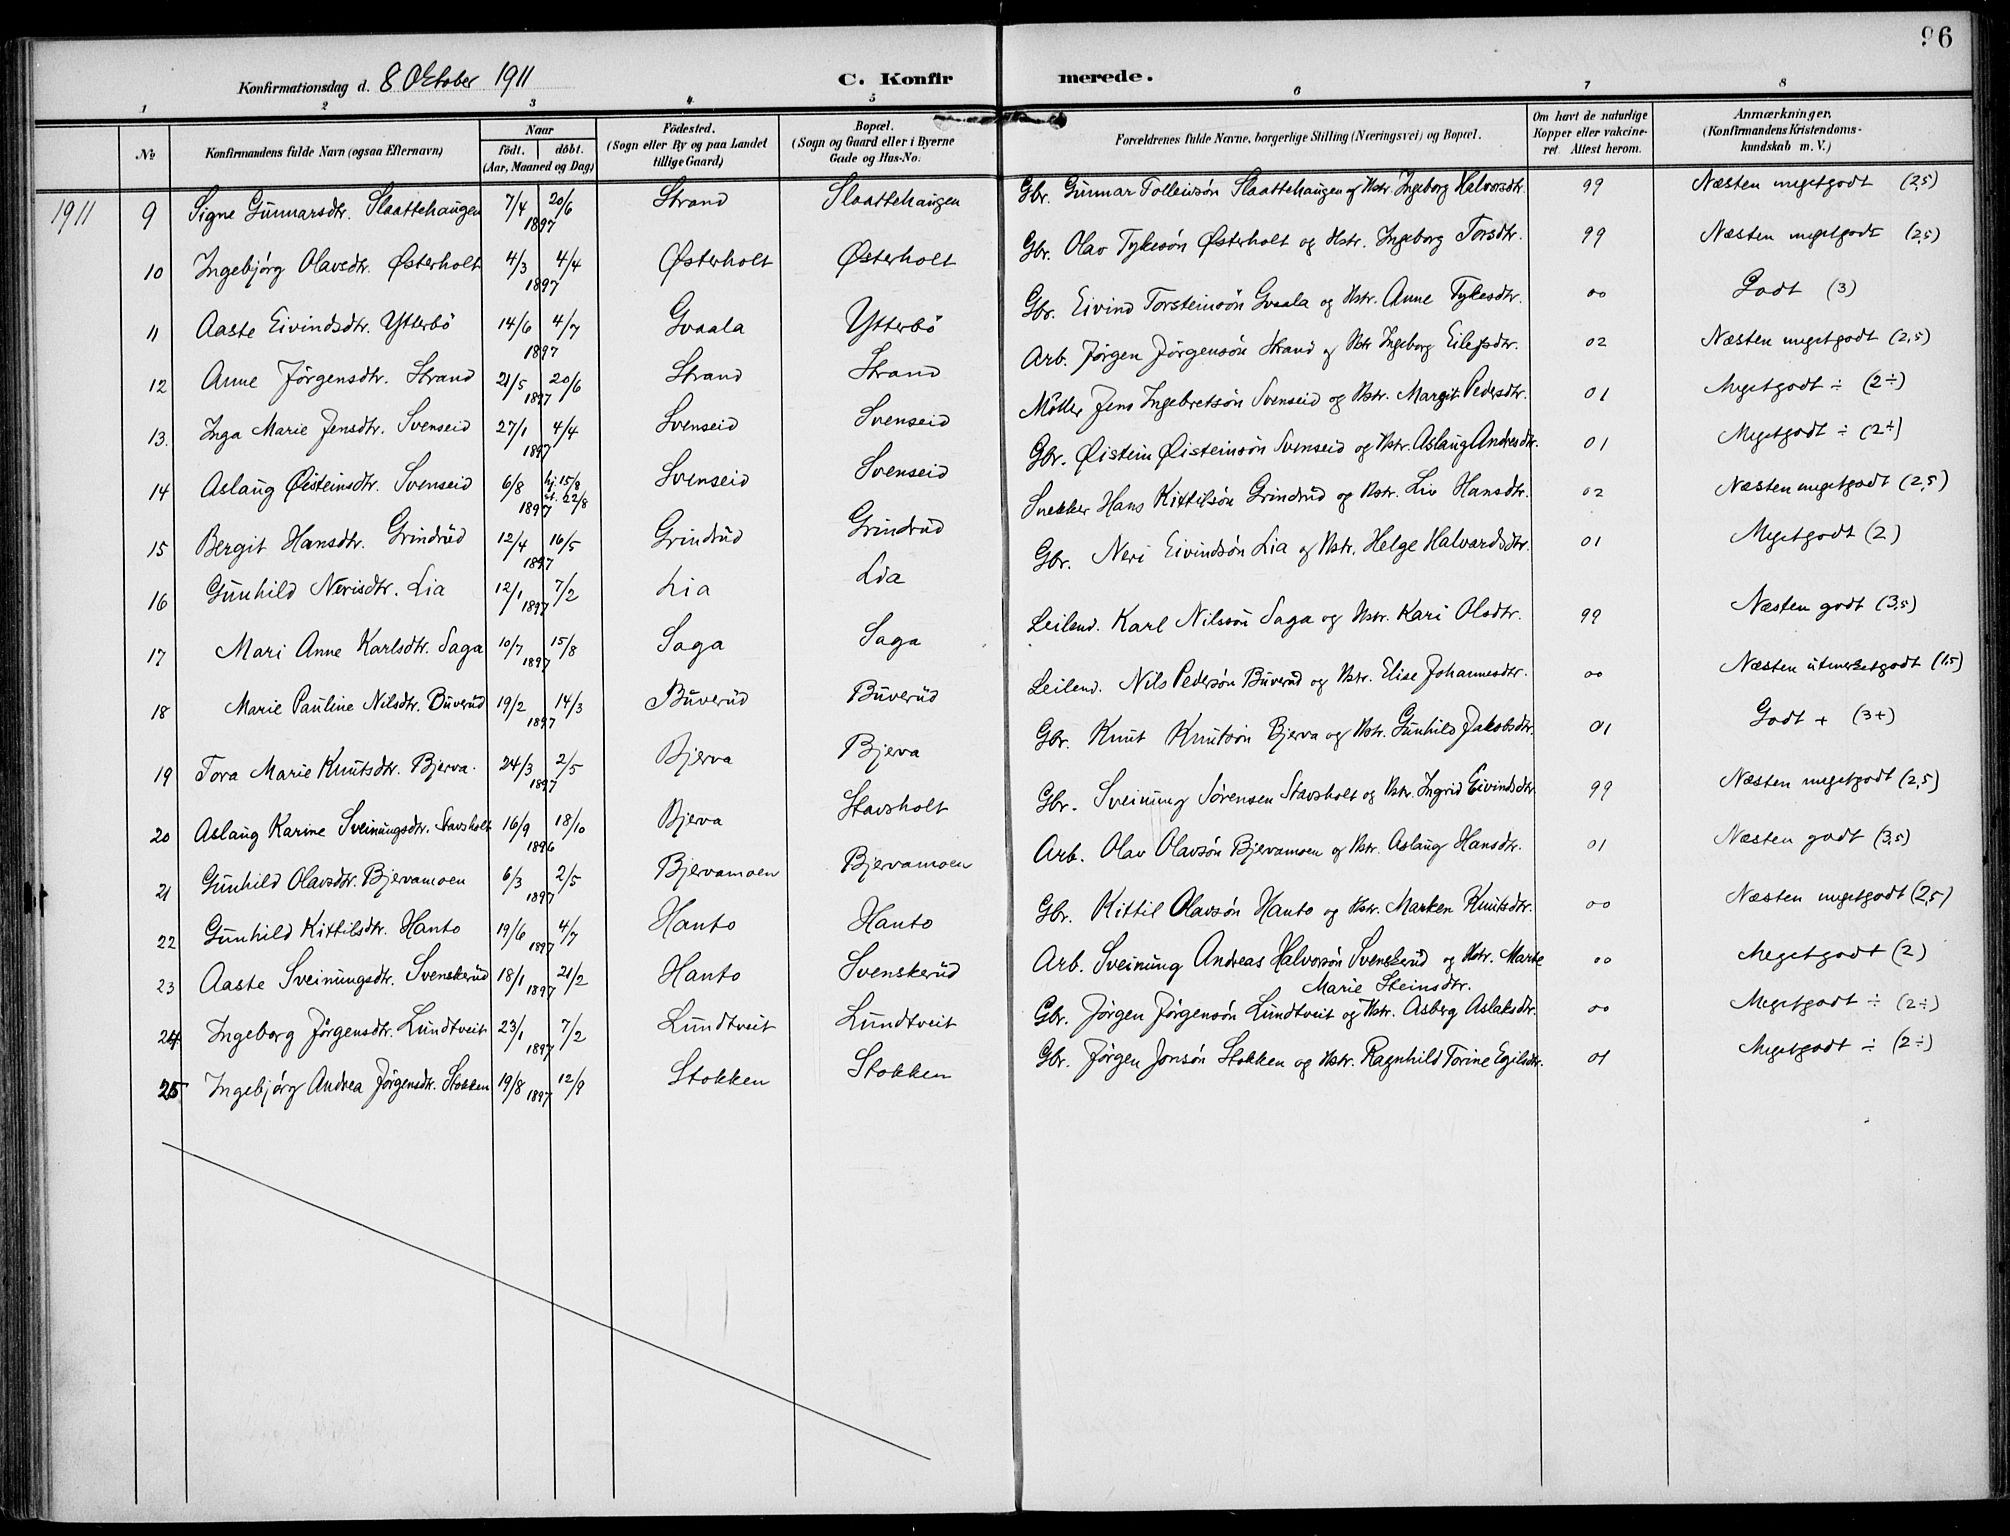 96
Konfirmationsdag d. 8 Oktober 1911 C. Konfirmerede.
1 2 3 4 5 6 7 8
No
Konfirmandens fulde Navn (ogsaa Efternavn)
Naar
födt. döbt.
(Aar, Maaned og Dag)
Födested.
(Sogn eller By og paa Landet
tillige Gaard)
Bopæl.
(Sogn og Gaard eller i Byerne
Gade og Hus-No.
Forældrenes fulde Navne, borgerlige Stilling (Næringsvei) og Bopæl.
Om havt de naturlige
Kopper eller vakcine-
ret Attest herom.
Anmærkninger.
(Konfirmandens Kristendoms-
kundskab m. V.)
1911 9 Signe Gunnarsdtr. Slaattehaugen 7/4 20/6 1897 Strand Slaattehaugen Gbr. Gunnar Tolleivsön Slaattehaugen og Hstr. Ingeborg Halvorsdtr. 99 Næsten megetgodt (2,5)
10 Ingebjörg Olavsdtr. Østerholt 4/3 4/4 1897 Østerholt Østerholt Gbr. Olav Tykesön Østerholt og Hstr. Ingeborg Torsdtr. 99 Næsten megetgodt (2,5)
11 Aaste Eivindsdtr. Ytterbö 14/6 4/7 1897 Gvaala Ytterbö Gbr. Eivind Torsteinsön Gvaala og Hstr. Anne Tykesdtr. 00 Godt (3)
12 Anne Jörgensdtr. Strand 21/5 20/6 1897 Strand Strand Arb. Jörgen Jörgensön Strand og Hstr Ingeborg Eilefsdtr. 02 Næsten megetgodt (2,5)
13. Inga Marie Jensdtr. Svenseid 27/1 4/4 1897 Svenseid Svenseid Möller Jens Ingebretsön Svenseid og Hstr. Margit Pedersdtr. 01 Megetgodt ÷ (2÷)
14 Aslaug Øisteinsdtr. Svenseid 6/8 hj. 15/8 kt. 22/8 1897 Svenseid Svenseid Gbr. Øistein Øisteinsön Svenseid og Hstr. Aslaug Andresdtr. 01 Megetgodt ÷ (2÷)
15 Bergit Hansdtr. Grindrud 12/4 16/5 1897 Grindrud Grindrud Snekker Hans Kittilsön Grindrud og Hstr. Liv Hansdtr. 02 Næsten megetgodt (2,5)
16 Gunhild Nerisdtr. Lia 12/1 7/2 1897 Lia Lia Gbr. Neri Eivindsön Lia og Hstr. Helge Halvardsdtr. 01 Megetgodt (2)
17 Mari Anne Karlsdtr. Saga 10/7 15/8 1897 Saga Saga Leilend. Karl Nilssön Saga og Hstr. Kari Olsdtr. 99 Næsten godt (3,5)
18 Marie Pauline Nilsdtr. Buverud 19/2 14/3 1897 Buverud Buverud Leilend. Nils Pedersön Buverud og Hstr. Elise Johannesdtr. 00 Næsten utmerketgodt (1,5)
19 Tora Marie Knutsdtr. Bjerva. 24/3 2/5 1897 Bjerva Bjerva Gbr. Knut Knutsön Bjerva og Hstr. Gunhild Jakobsdtr. 01 Godt + (3+)
20 Aslaug Karine Sveinungsdtr. Stavsholt 16/9 18/10 1896 Bjerva Stavsholt Gbr. Sveinung Sörensen Stavsholt og Hstr. Ingrid Eivindsdtr. 99 Næsten megetgodt (2,5)
21 Gunhild Olavsdtr. Bjervamoen 6/3 2/5 1897 Bjervamoen Bjervamoen Arb. Olav Olavsön Bjervamoen og Hstr. Aslaug Hansdtr. 01 Næsten godt (3,5)
22 Gunhild Kittilsdtr. Hanto 19/6 4/7 1897 Hanto Hanto Gbr. Kittil Olavsön Hanto og Hstr. Marken Knutsdtr. 00 Næsten megetgodt (2,5)
23 Aaste Sveinungsdtr. Svenskerud 18/1 21/2 1897 Hanto Svenskerud Arb. Sveinung Andreas Halvorsön Svenskerud og Hstr. Marte 00 Megetgodt (2)
Marie Steinsdtr.
24 Ingeborg Jörgensdtr. Lundtveit 23/1 7/2 1897 Lundtveit Lundtveit Gbr. Jörgen Jörgensön Lundtveit og Hstr. Asberg Aslaksdtr. 00 Megetgodt ÷ (2÷)
25 Ingebjörg Andrea Jörgensdtr. Stokken 19/8 12/9 1897 Stokken Stokken Gbr. Jörgen Jonsön Stokken og Hstr. Ragnhild Torine Egilsdtr. 01 Megetgodt ÷ (2÷)